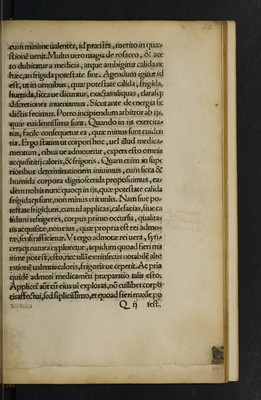 eum minime ualentes, id præstet, merito in quæ-
stione uenit. Multo uero magis de rosaceo, & ace
to dubitatur a medicis, atque ambigitur calida ne
hæc, an frigida potestate sint. Agendum igitur id
est, ut in omnibus, quæ potestate calida, frigida,
humida, sicca ue dicuntur, exactas aliquas, clarasq;
discretiones inueniamus. Sicut ante de energia sic
dictis fecimus. Porro incipiendum arbitror ab ijs,
quæ euidentissima sunt. Quando in ijs exercita-
tus, facile consequetur ea, quæ minus sunt euiden
tia. Ergo statim ut corpori hoc, uel illud medica-
mentum, cibus ue admouetur, expers esto omnis
acquisititij caloris, & frigoris. Quam enim in supe
rioribus determinationem iniuimus, cum sicca &
humida corpora dignoscenda proposuimus, ea-
dem nobis nunc quoq; in ijs, quæ potestate calida
frigidaq; sunt, non minus erit utilis. Nam siue po-
testate frigidum, cum id applicas, calefacias, siue ca
lidum refrigeres, corpus primo occursu, qualita-
tis acquisitæ, non eius, quæ propria est rei admo-
tæ, sensu afficietur. Vt ergo admotæ rei uera, syn-
ceraq; natura exploretur, tepidum quoad fieri ma
xime potest, esto, nec ullam extrinsecus notabilem alte
rationem ualentis caloris, frigoris ue ceperit. Ac pri
quidem admoti medicamenti præparatio talis esto.
Applices autem cum eius uim exploras, non cuilibet corpo
ris affectui, sed simplicissimo, et quoad fieri maxime po
Q ij test.